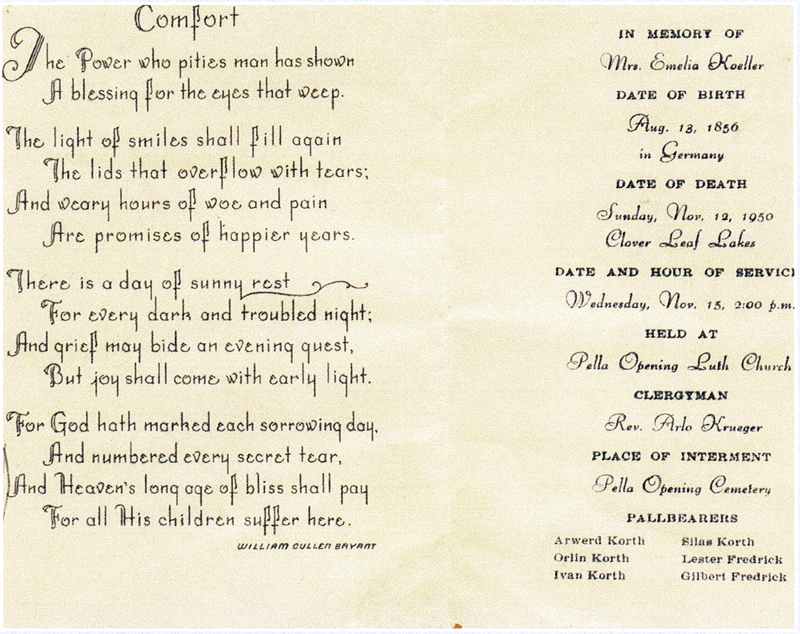 Comfort
The Power who pities man has shown
A blessing for the eyes that weep.
The light of smiles shall fill again
The lids that overflow with tears;
And weary hours of woe and pain
Are promises of happier years.
There is a day of sunny rest
For every dark and troubled night;
And grief may bide an evening guest,
But joy shall come with early light.
For God hath marked each sorrowing day,
And numbered every secret tear,
And Heaven's long age of bliss shall pay
For all His children suffer here.
WILLIAM CULLEN BRYANT
IN MEMORY OF
Mrs. Emelia Koeller
DATE OF BIRTH
Aug. 13, 1856
in Germany
DATE OF DEATH
Sunday, Nov. 12, 1950
Clover Leaf Lakes
DATE AND HOUR OF SERVIC
Wednesday, Nov. 15, 2:00 p.m.
HELD AT
Pella Opening Luth Church
CLERGYMAN
Rev. Arlo Krueger
PLACE OF INTERMENT
Pella Opening Cemetery
PALLBEARERS
Arwerd Korth Silas Korth
Orlin Korth Lester Fredrick
Ivan Korth Gilbert Fredrick